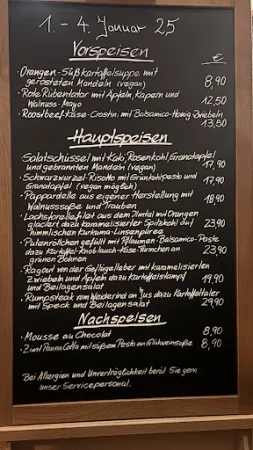 1. - 4. Januar 25
Vorspeisen
€
· Orangen-Süßkartoffelsuppe mit
gerösteten Mandeln (vegan) 8,90
· Rote Rübentatar mit Äpfeln, Kapern und
Walnuss-Mayo 12,50
· Roastbeef-Käse-Crostini mit Balsamico-Honig Zwiebeln
13,50
Hauptspeisen
· Salatschüssel mit Kaki, Rosenkohl, Granatapfel
und gebrannten Mandeln (vegan) 17,90
· Schwarzwurzel-Risotto mit Grünkohlpesto und
Granatapfel (vegan möglich) 17,90
· Pappardelle aus eigener Herstellung mit
Walnusssoße und Trauben 18,90
· Lachsforellefilet aus dem mit Orangen
glaciert dazu karamelisierter Spitzkohl auf
himmlischen Kurkuma-Linsenpüree 23,90
· Putenröllchen gefüllt mit Pflaumen-Balsamico-Paste
dazu Kartoffel-Knoblauch-Käse-Türmchen an
grünen Bohnen 23,90
· Ragout von der Geflügelleber mit karamelisierten
Zwiebeln und Äpfeln dazu Kartoffelstampf
und Beilagensalat 19,90
· Rumpsteak vom Weiderind an Jus dazu Kartoffeltaler
mit Speck und Beilagensalat 29,90
Nachspeisen
· Mousse au Chocolat 8,90
· 2 Panna Cotta mit süßem Pesto an Glühweinsoße 8,90
Bei Allergien und Unverträglichkeit berät Sie gern
unser Servicepersonal.